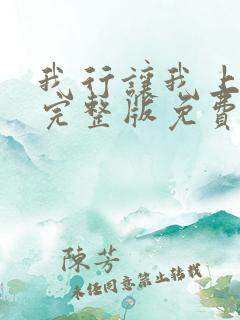 我行讓我上
完整版免費
陳芳
未經同意禁止轉載